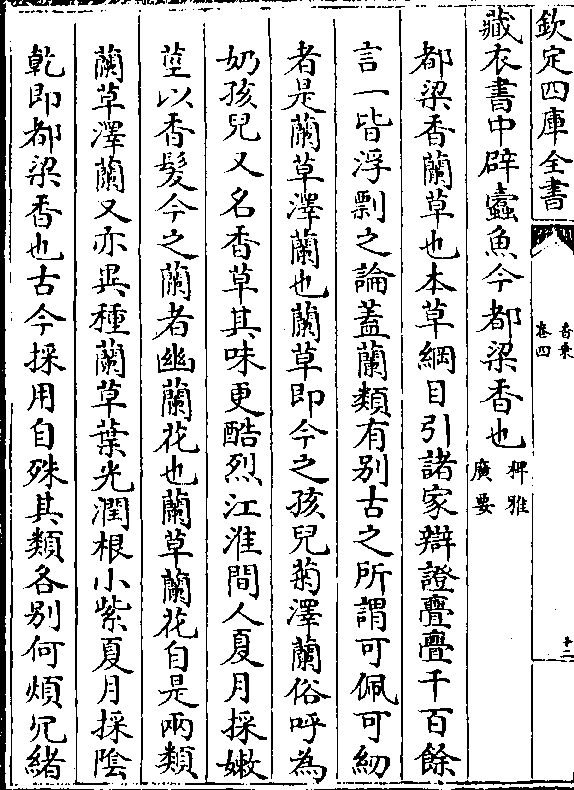 欽定四庫全書
香乗
卷四
十二
藏衣書中辟蠧魚今都梁香也
稗雅
廣要
都梁香蘭草也本草綱目引諸家辯證亹亹千百餘
言一皆浮剽之論蓋蘭類有别古之所謂可佩可紉
者是蘭草澤蘭也蘭草即今之孩兒菊澤蘭俗呼為
奶孩兒又名香草其味更酷烈江淮間人夏月採嫩
莖以香髮今之蘭者幽蘭花也蘭草蘭花自是兩類
蘭草澤蘭又亦異種蘭草葉光潤根小紫夏月採隂
乾即都梁香也古今採用自殊其類各别何煩冗緒